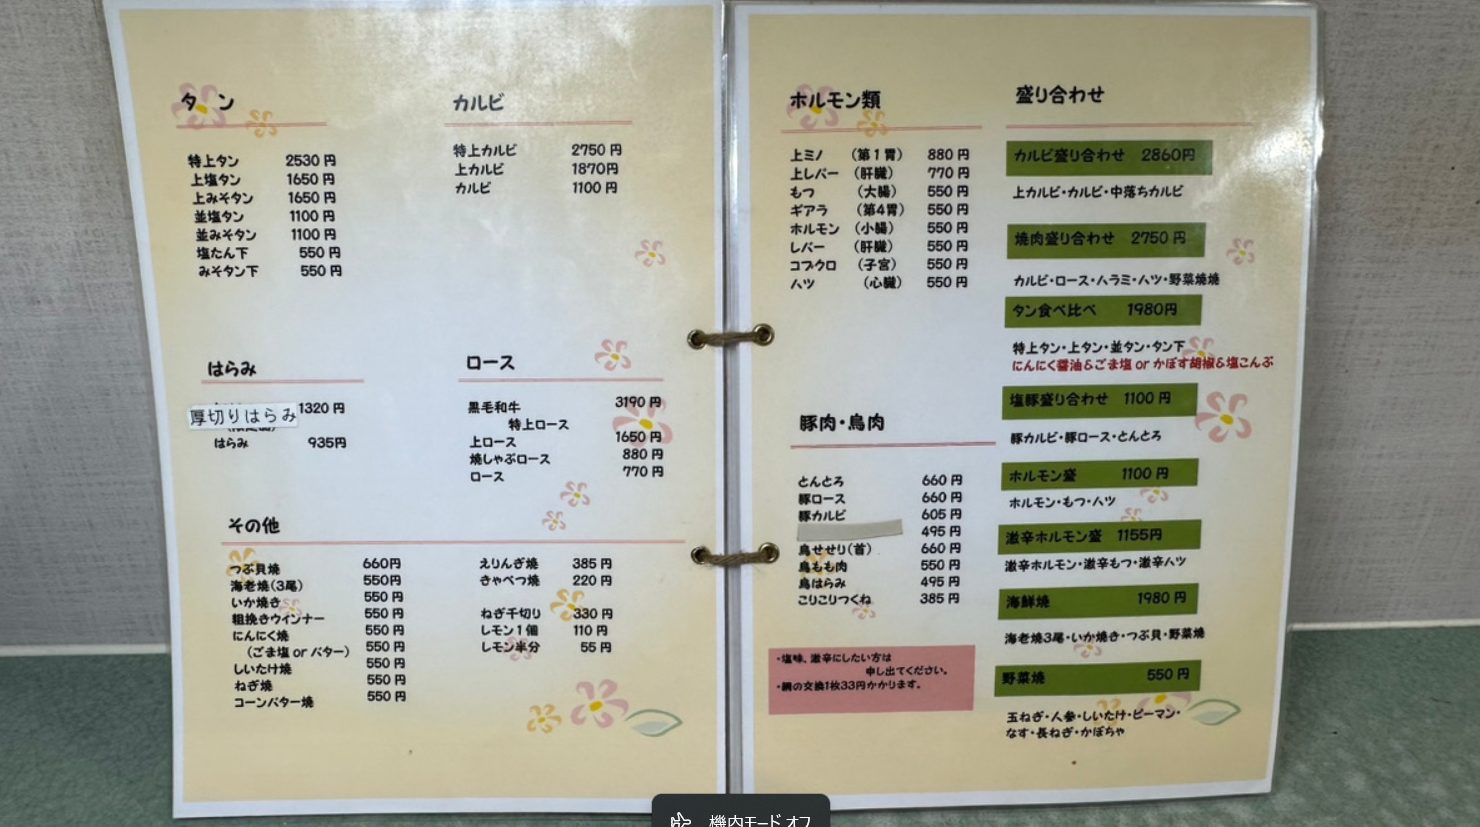 タン
特上タン 2530 円
上塩タン 1650 円
上みそタン 1650 円
並塩タン 1100 円
並みそタン 1100 円
塩たん下 550 円
みそタン下 550 円
カルビ
特上カルビ 2750 円
上カルビ 1870円
カルビ 1100 円
はらみ
厚切りはらみ 1320 円
はらみ 935円
ロース
黒毛和牛 3190 円
特上ロース
上ロース 1650 円
焼しゃぶロース 880 円
ロース 770 円
その他
つぶ貝焼 660円
海老焼(3尾) 550円
いか焼き 550 円
粗挽きウインナー 550 円
にんにく焼 550 円
(ごま塩 or バター) 550 円
しいたけ焼 550 円
ねぎ焼 550 円
コーンバター焼 550 円
えりんぎ焼 385 円
きゃべつ焼 220 円
ねぎ千切り 330 円
レモン1個 110 円
レモン半分 55 円
ホルモン類
上ミノ (第1胃) 880 円
上レバー (肝臓) 770 円
もつ (大腸) 550 円
ギアラ (第4胃) 550 円
ホルモン (小腸) 550 円
レバー (肝臓) 550 円
コブクロ (子宮) 550 円
ハツ (心臓) 550 円
豚肉・鳥肉
とんとろ 660 円
豚ロース 660 円
豚カルビ 605 円
495 円
鳥せせり(首) 660 円
鳥もも肉 550 円
鳥はらみ 495 円
こりこりつくね 385 円
・塩味、激辛にしたい方は
申し出てください。
・網の交換1枚33円かかります。
盛り合わせ
カルビ盛り合わせ 2860円
上カルビ・カルビ・中落ちカルビ
焼肉盛り合わせ 2750 円
カルビ・ロース・ハラミ・ハツ・野菜焼焼
タン食べ比べ 1980円
特上タン・上タン・並タン・タン下
にんにく醤油&ごま塩 or かぼす胡椒&塩こんぶ
塩豚盛り合わせ 1100 円
豚カルビ・豚ロース・とんとろ
ホルモン盛 1100 円
ホルモン・もつ・ハツ
激辛ホルモン盛 1155円
激辛ホルモン・激辛もつ・激辛ハツ
海鮮焼 1980 円
海老焼3尾・いか焼き・つぶ貝・野菜焼
野菜焼 550 円
玉ねぎ・人参・しいたけ・ピーマン・
なす・長ねぎ・かぼちゃ
機内モード オフ